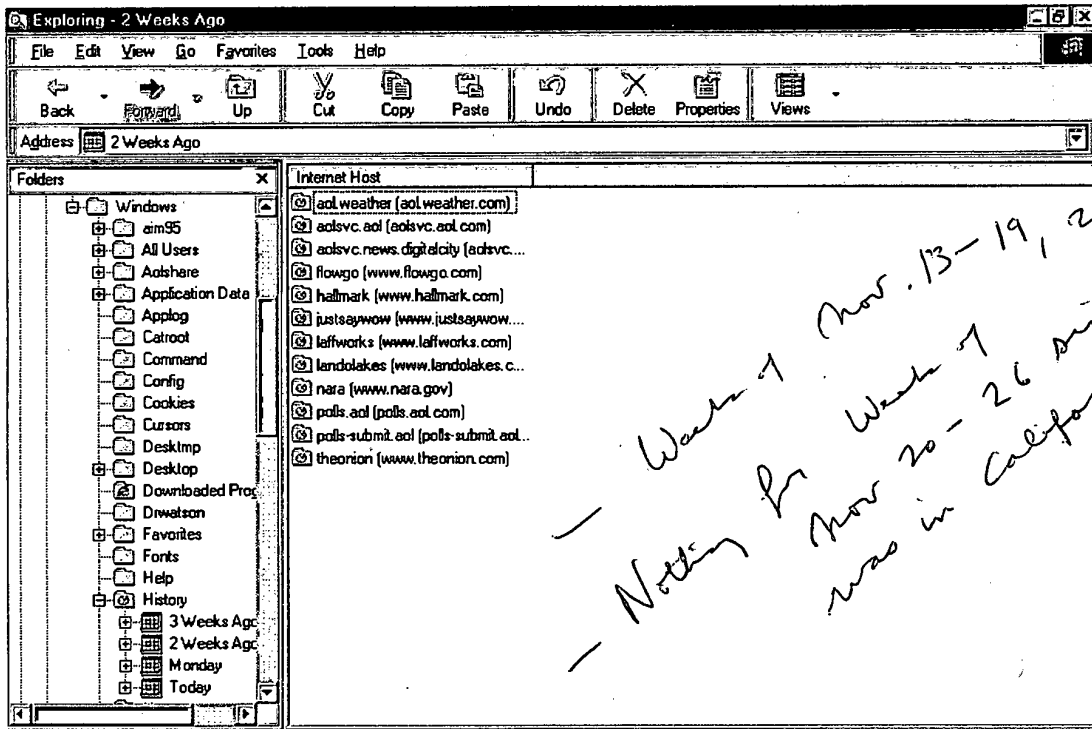 Exploring - 2 Weeks Ago
File Edit View Go Favorites Tools Help
Back Forward Up Cut Copy Paste Undo Delete Properties Views
Address 2 Weeks Ago
Folders
Windows
aim95
All Users
Aolshare
Application Data
Applog
Catroot
Command
Config
Cookies
Cursors
Desktmp
Desktop
Downloaded Prog
Drwatson
Favorites
Fonts
Help
History
3 Weeks Ago
2 Weeks Ago
Monday
Today
Internet Host
aol.weather (aol.weather.com)
aolsvc.aol (aolsvc.aol.com)
aolsvc.news.digitalcity (aolsvc....
flowgo (www.flowgo.com)
hallmark (www.hallmark.com)
justsaywow (www.justsaywow....
laffworks (www.laffworks.com)
landolakes (www.landolakes.c...
nara (www.nara.gov)
polls.aol (polls.aol.com)
polls-submit.aol (polls-submit.aol...
theonion (www.theonion.com)
— Week of Nov. 13-19, 2
— Nothing for Week of
Nov 20-26
was in Califo